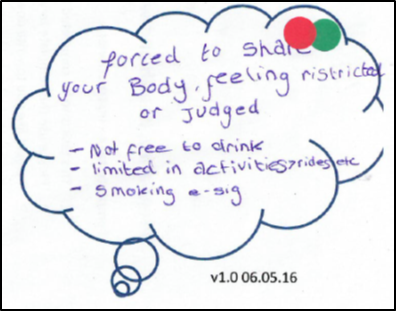 forced to share
your Body, feeling ristricted
or judged
- Not free to drink
- limited in activities>rides etc
- Smoking e-sig
v1.0 06.05.16